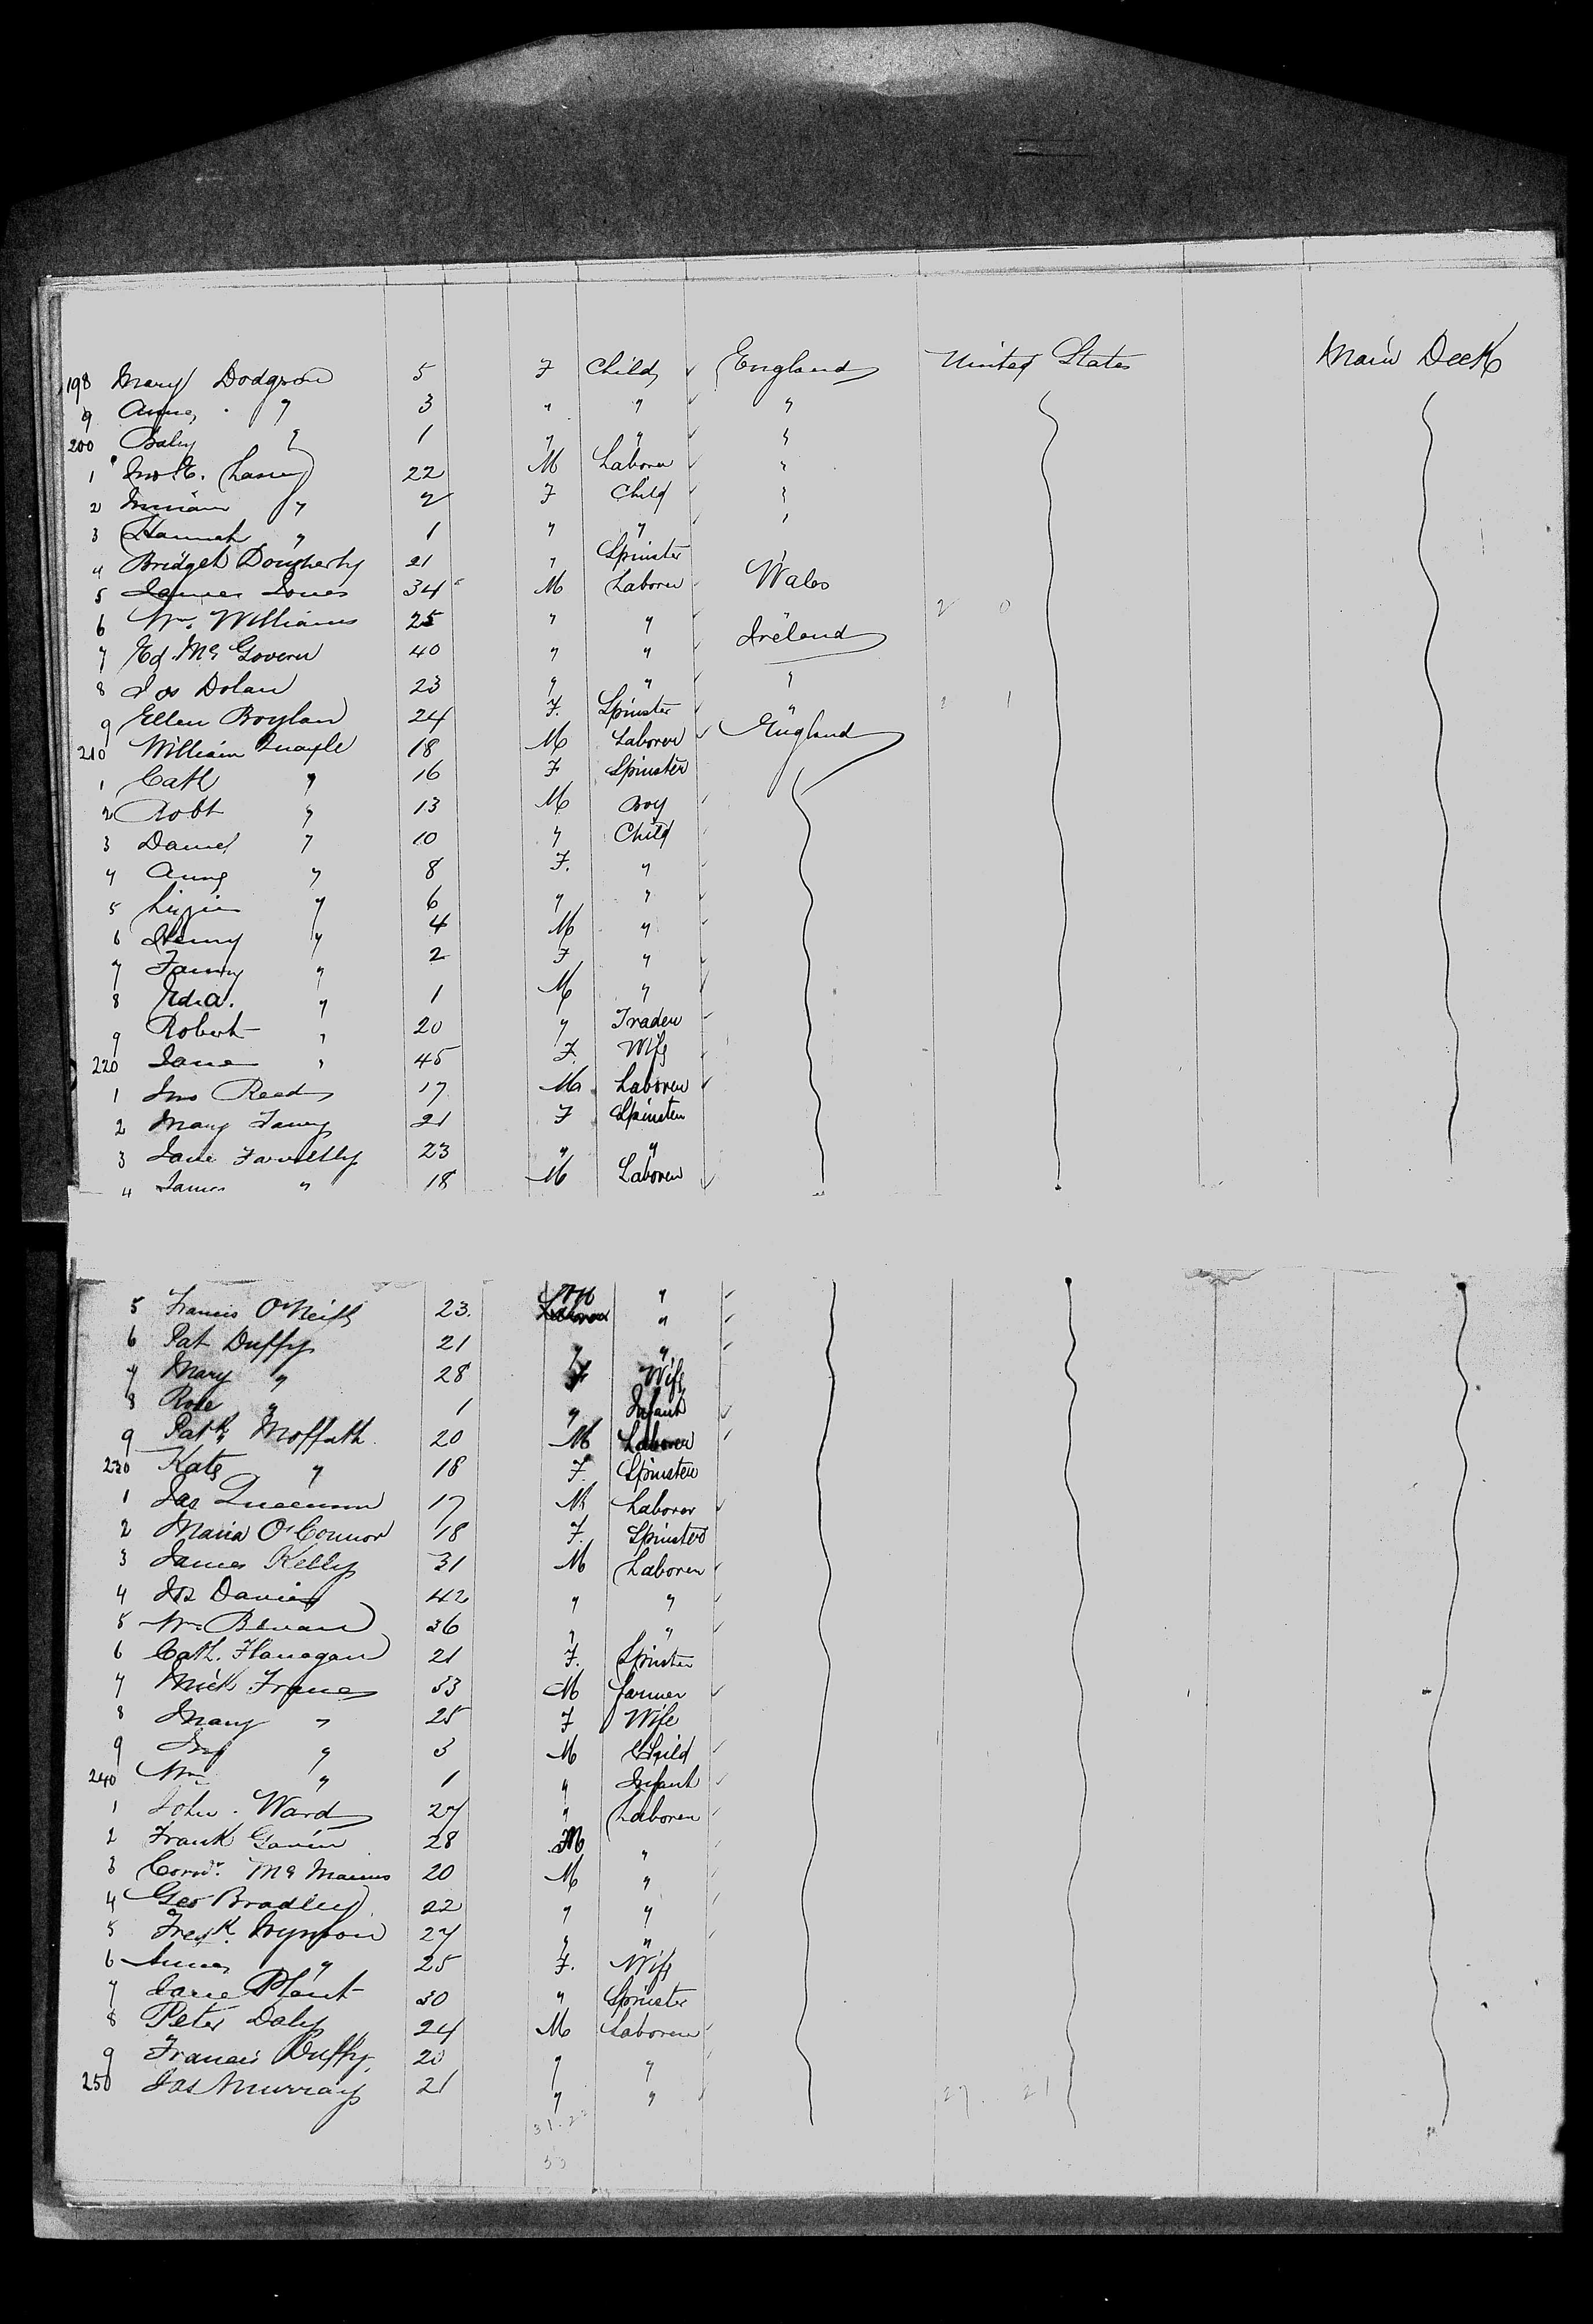 198 Mary Dodgson 5 F Child England United States Main Deck
9 Anne " 3 " " "
200 Baby " 1 " " "
1 Jno E. 22 M Laborer "
2 Miriam " 2 F Child "
3 Hannah " 1 " " "
4 Bridget Dougherty 21 " Spinster "
5 James Jones 34 M Laborer Wales
6 Wm. Williams 25 " " "
7 Ed. McGovern 40 " " Ireland
8 Jos Dolan 23 " " "
9 Ellen Boylan 24 F. Spinster "
210 William Quayle 18 M Laborer England
1 Cath " 16 F Spinster
2 Robt " 13 M Boy
3 Daniel " 10 " Child
4 Anne " 8 F. "
5 Lizzie " 6 " "
6 Henry " 4 M "
7 Fanny " 2 F "
8 Ed.a. " 1 M "
9 Robert " 20 " Trader
220 Jane " 45 F. Wife
1 Jno Reed 17 M Laborer
2 Mary 21 F Spinster
3 Jane 23 " "
4 James " 18 M Laborer
5 Francis O'Neill 23. "
6 Pat Duffy 21 " "
7 Mary " 28 F Wife
8 Rose " 1 " Infant
9 Patk Moffatt 20 M Laborer
230 Kate " 18 F. Spinster
1 Jas 17 M Laborer
2 Maria O'Connor 18 F. Spinster
3 James Kelly 31 M Laborer
4 Jos Davies 42 " "
5 Wm Bevan 36 " "
6 Cath. Flanagan 21 F. Spinster
7 Mick 33 M Farmer
8 Mary " 25 F Wife
9 Jno " 3 M Child
240 Wm " 1 " Infant
1 John Ward 27 " Laborer
2 Frank Gavin 28 M "
3 McManus 20 M "
4 Geo Bradley 22 " "
5 Fredk. 27 " "
6 Annie " 25 F. Wife
7 Jane Plant 30 " Spinster
8 Peter Daly 24 M Laborer
9 Francis Duffy 20 " "
250 Jas Murray 21 " "